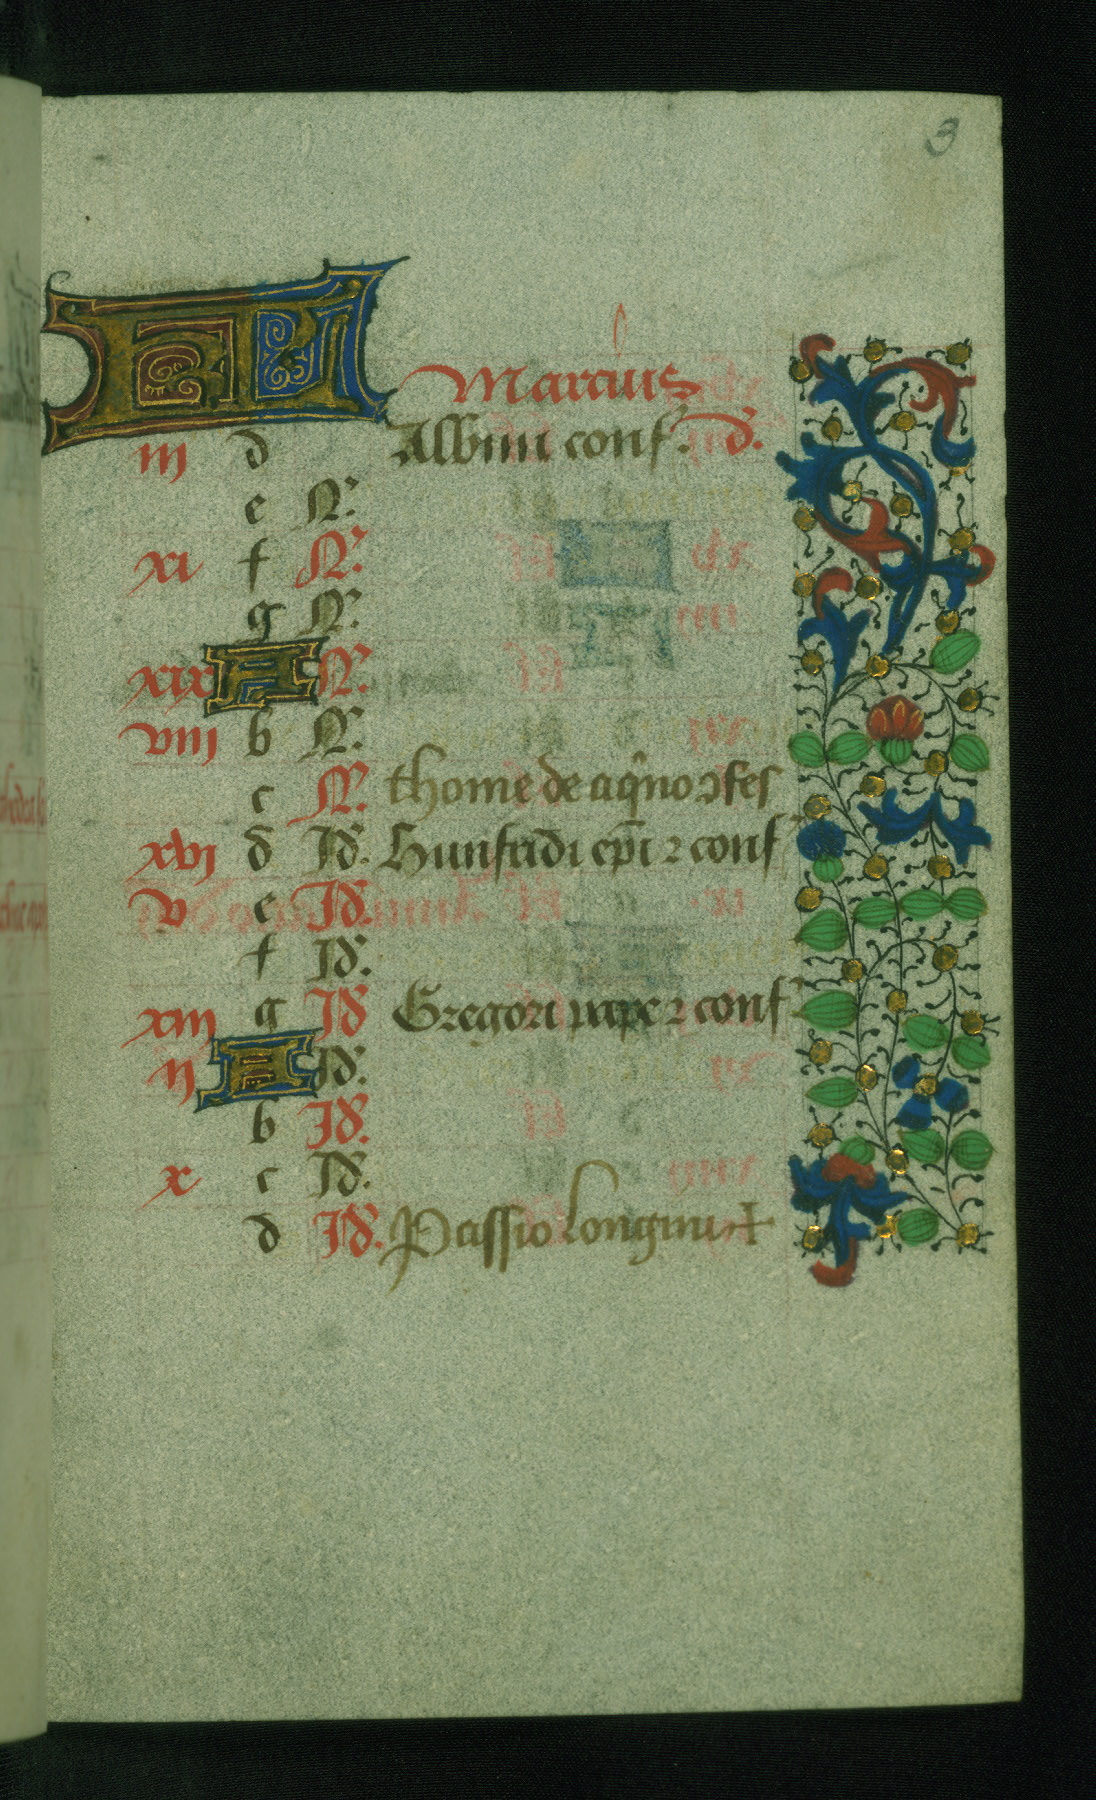 3
KL Marcius
iij d Albini conf. d.
e N.
xi f N.
g N.
xix A N.
viij b N.
c N. thome de aq̄no ɔfes
xvj d Id. Hunfridi ep̄i ⁊ conf
v e Id.
f Id.
xiij g Id Gregori pape ⁊ conf
ij A Id.
b Id.
x c Id.
d Id. Passio longini +